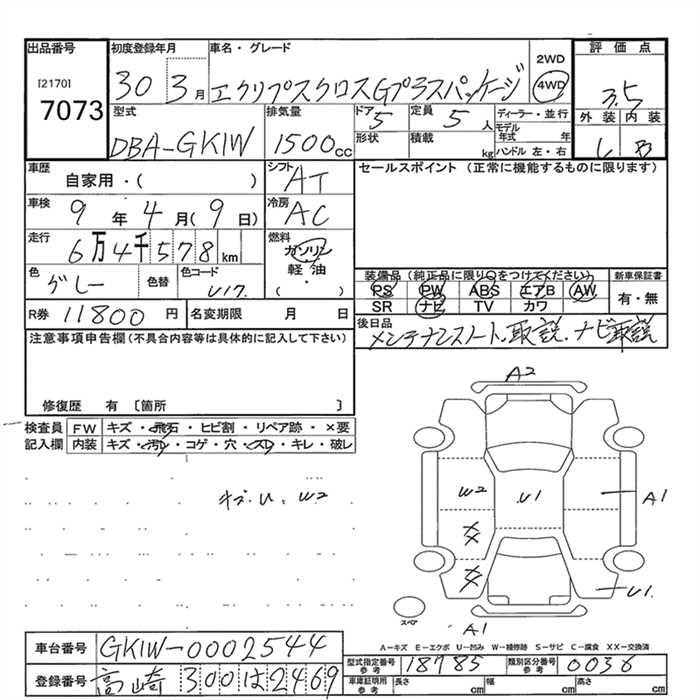 出品番号 初度登録年月 車名・グレード 2WD 評価点
[2170] 7073 30 3月 エクリプスクロスGプラスパッケージ 4WD 3.5
型式 排気量 ドア 5 定員 5人 ディーラー・並行 外装 内装
DBA-GK1W 1500cc 形状 積載 kg モデル年式 年 ハンドル 左・右 B
車歴 自家用・( ) シフト AT セールスポイント (正常に機能するものに限ります)
車検 9年4月(9日) 冷房 AC
走行 6万4千578km 燃料 ガソリン 軽油 ・( )
色 グレー 色替 色コード U17. 装備品 (純正品に限り○をつけてください) 新車保証書
PS PW ABS エアB AW 有・無
SR ナビ TV カワ
R券 11800円 名変期限 月 日 後日品 メンテナンスノート、取説、ナビ取説
注意事項申告欄(不具合内容等は具体的に記入して下さい)
修復歴 有 〔箇所 〕
検査員 FW キズ・飛石・ヒビ割・リペア跡・×要
記入欄 内装 キズ・汚レ・コゲ・穴・スレ・キレ・破レ
キズ・U、W2
A2
W2 U1 A1
XX
XX U1
スペア A1
A-キズ E-エクボ U-凹み W-補修跡 S-サビ C-腐食 XX-交換済
車台番号 GK1W-0002544
型式指定番号 参考 18785 類別区分番号 参考 0036
登録番号 高崎 300 は 2469
車庫証明用 参考 長さ cm 幅 cm 高さ cm